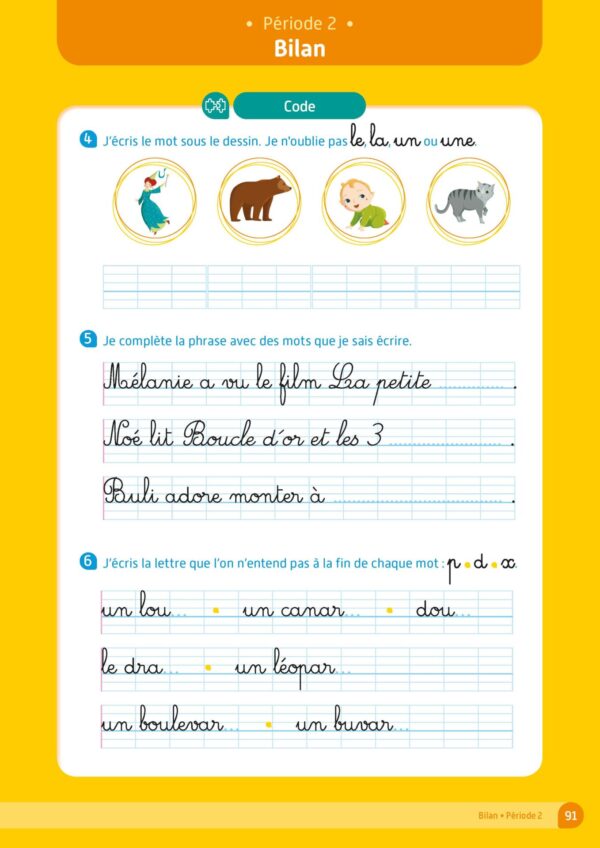 • Période 2 •
Bilan
Code
4 J'écris le mot sous le dessin. Je n'oublie pas le, la, un ou une.
5 Je complète la phrase avec des mots que je sais écrire.
Mélanie a vu le film La petite ............ .
Noé lit Boucle d'or et les 3 .................... .
Buli adore monter à .............................. .
6 J'écris la lettre que l'on n'entend pas à la fin de chaque mot : p • d • x.
un lou... • un canar... • dou...
le dra... • un léopar...
un boulevar... • un buvar...
Bilan • Période 2 91